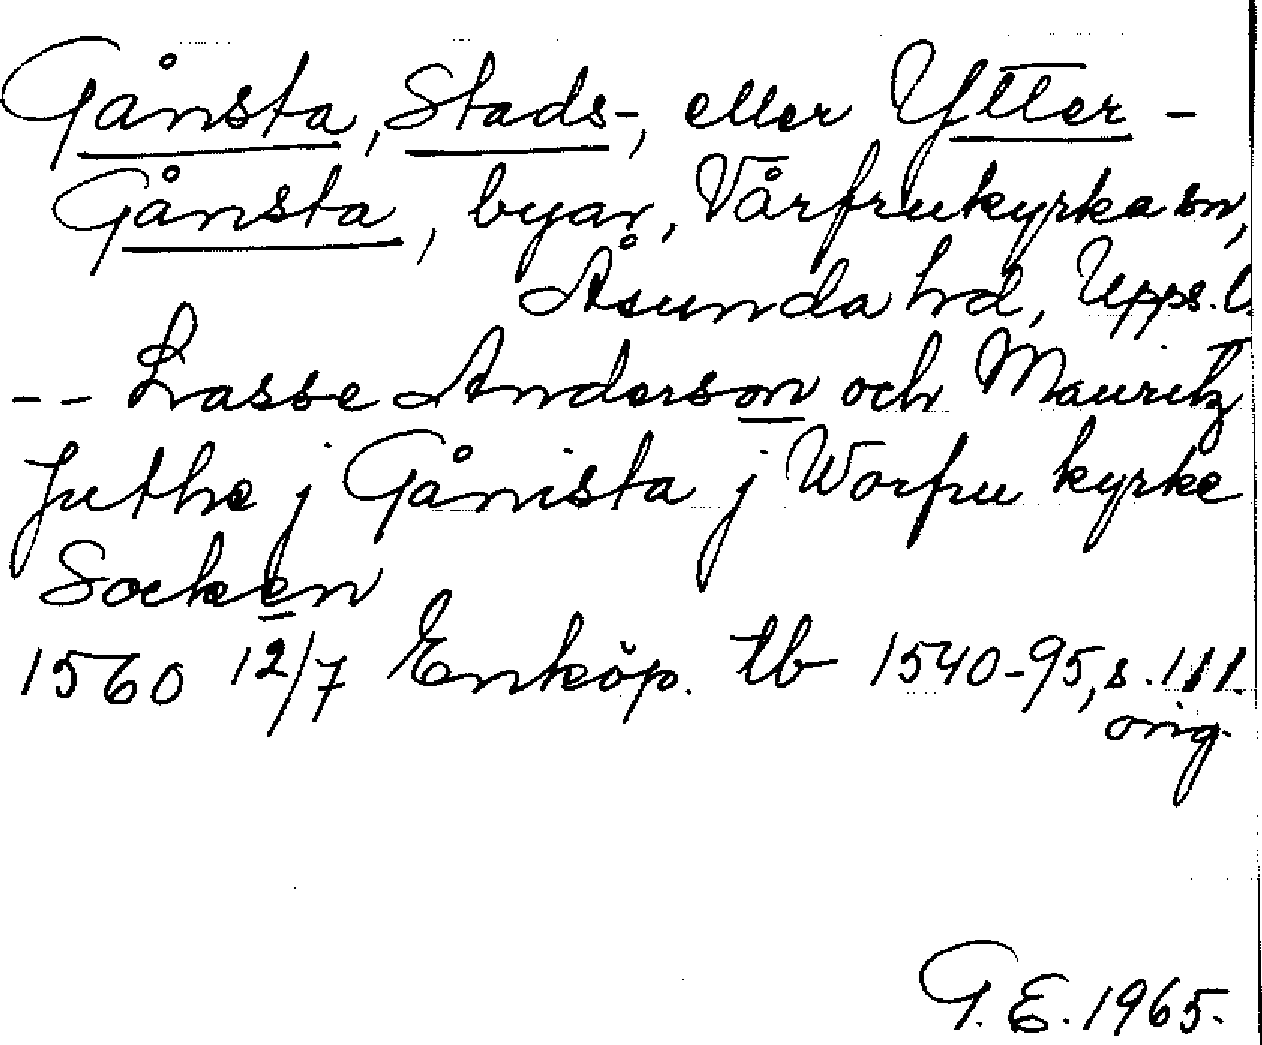 Gånsta, Stads-, eller Ytter-
Gånsta, byar, Vårfrukyrka sn,
Åsunda hd, Upps. l.
-- Lasse Anderson och Mauritz
Juthe j Gånista j Worfru kyrke
Socken
1560 12/7 Enköp. tb 1540-95, s. 111.
orig.
G. E. 1965.